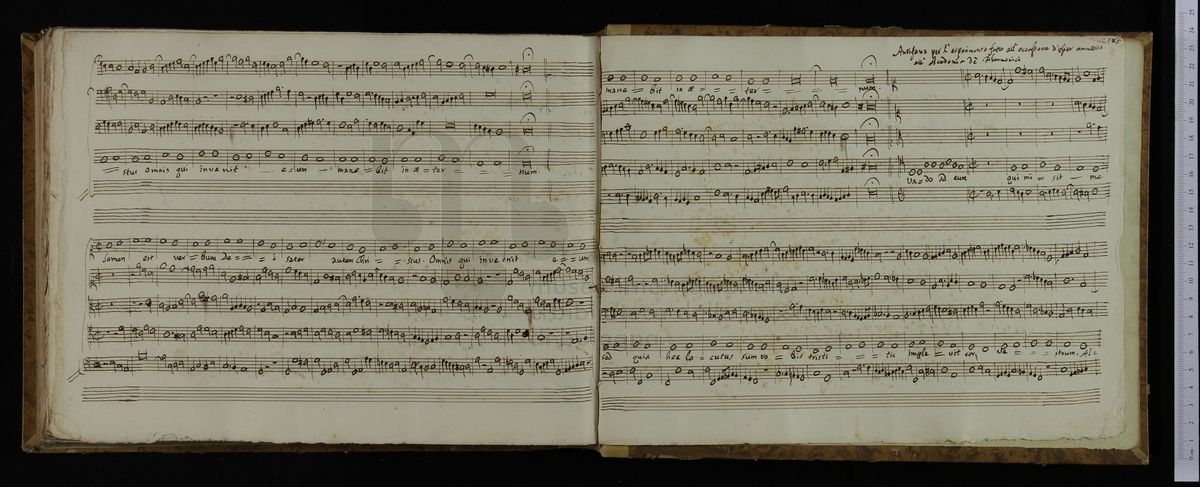 stus omnis qui invenit e = um mane = bit in æ = ter = = = = num
Semen est ver = bum De = = = i sator autem Chri = = stus. Omnis qui invenit e = = um
185
Antifona per l' esperimento fatto all' occasione d'esser ammesso
all' Accademia de Filarmonici
mane = bit in æ = = = ter = = = = = num
Va = do ad eum qui mi = sit = me
sed quia hæc lo = cutus sum vo = bis tristi = = = tia imple = vit cor ve = = = strum. Al =